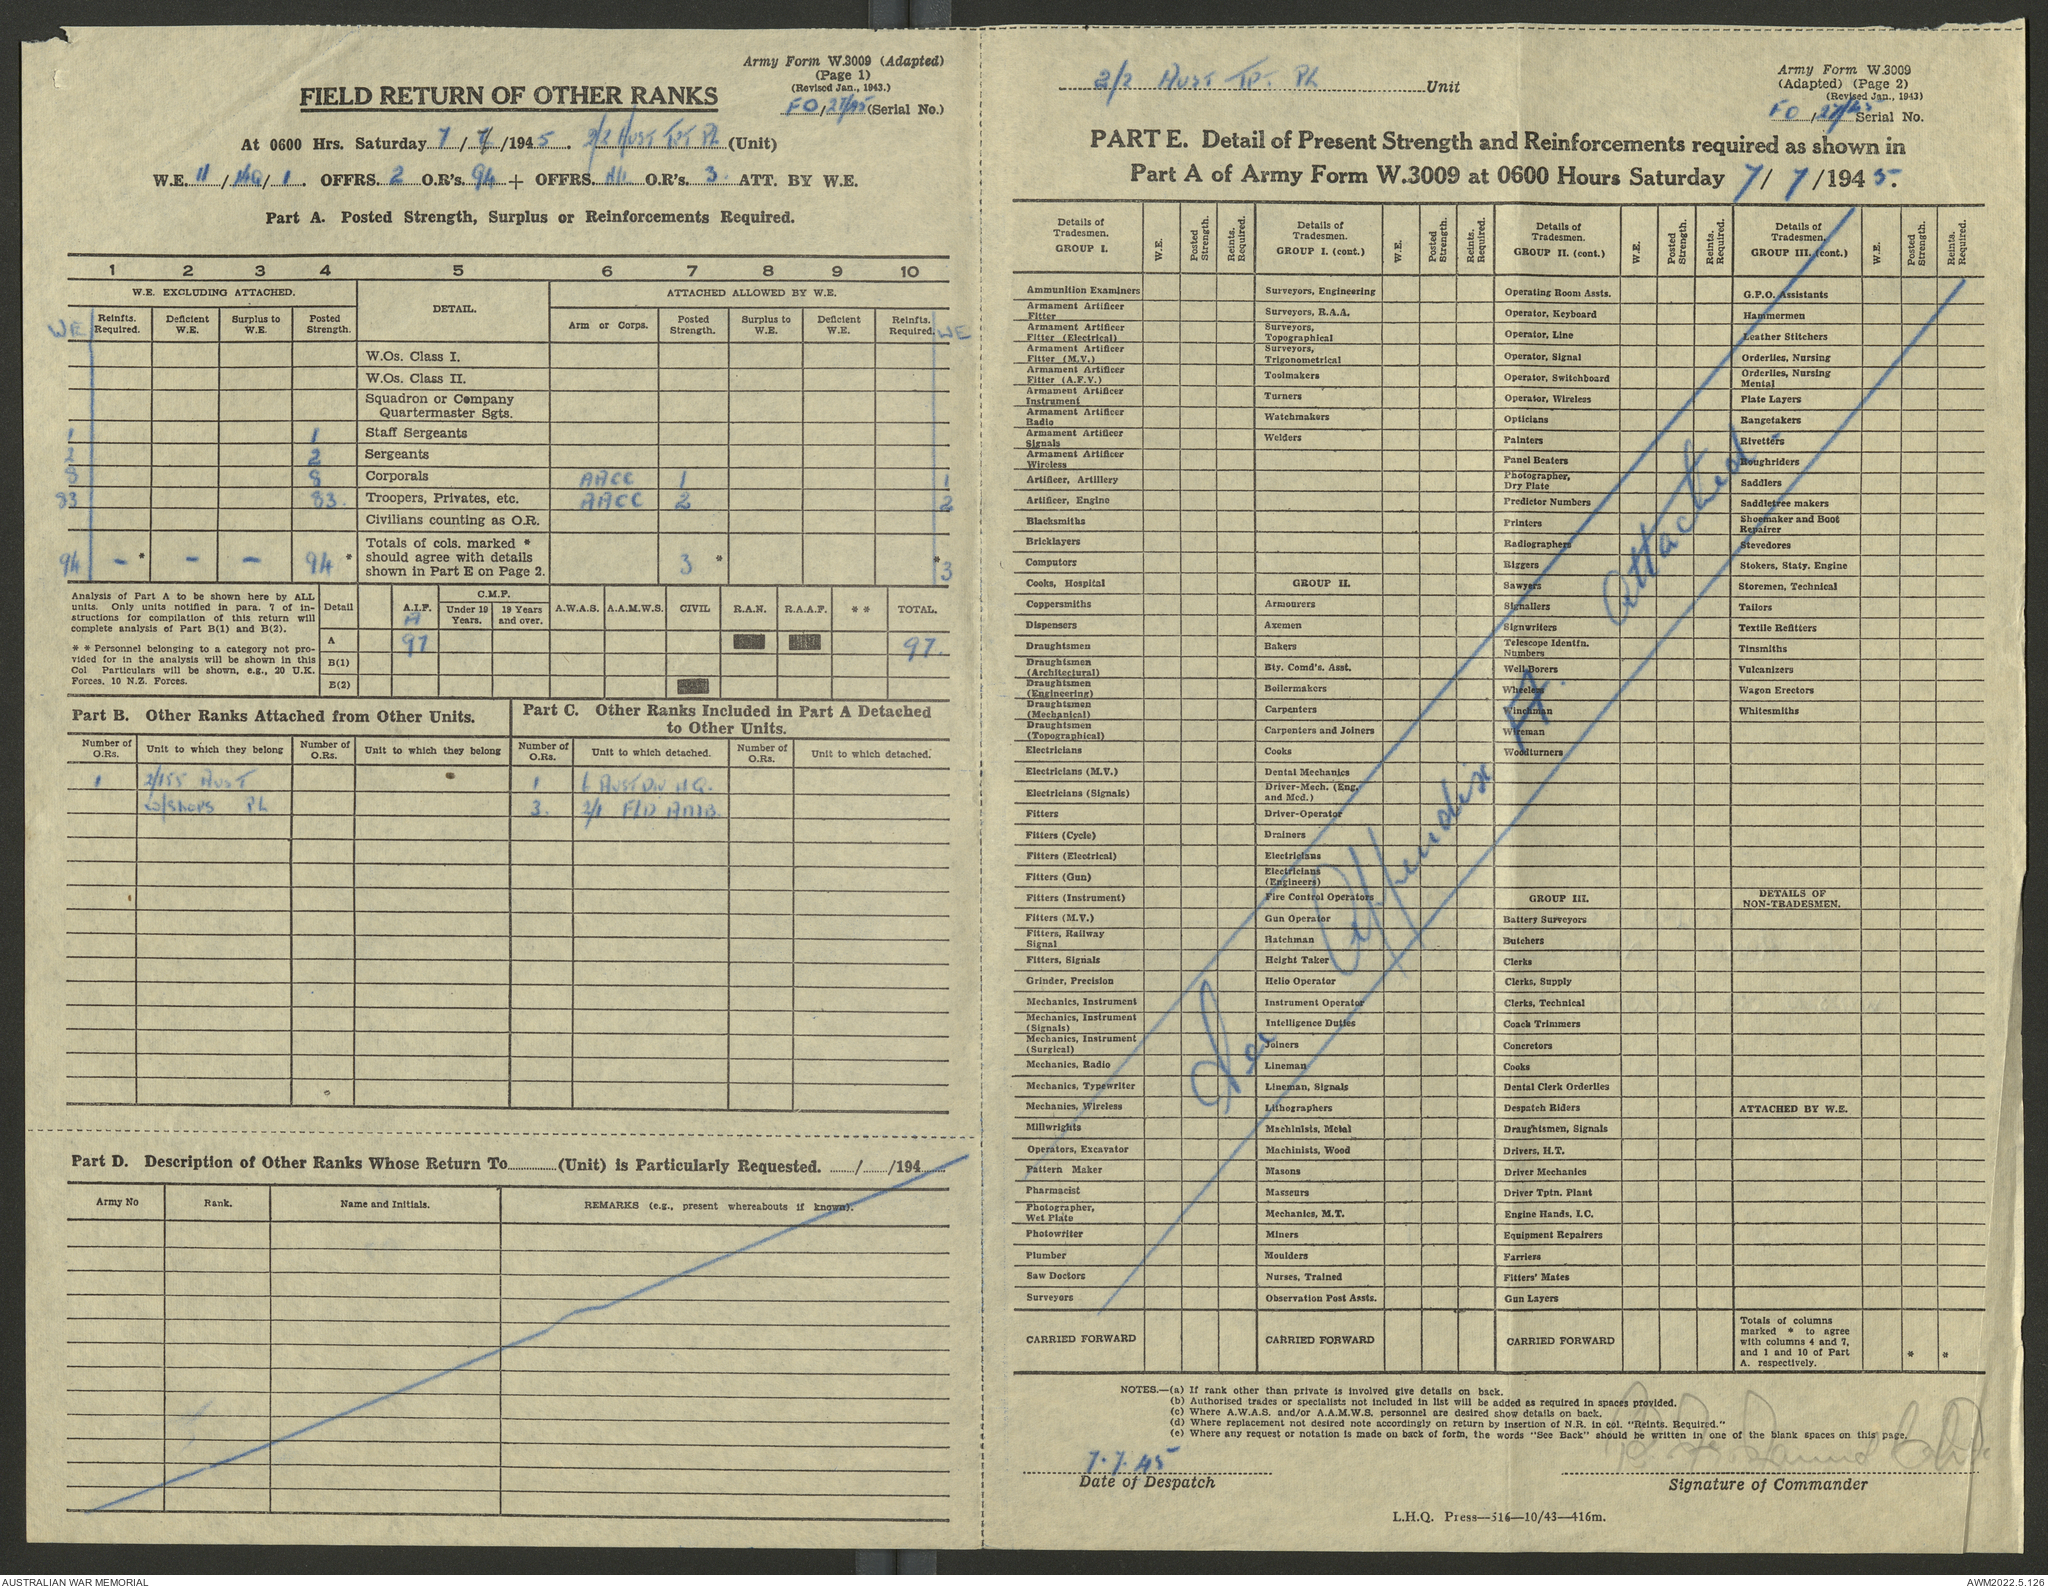 Army Form W.3009 (Adapted)
(Page 1)
(Revised Jan., 1943.)
FO/27/45 (Serial No.)
FIELD RETURN OF OTHER RANKS
At 0600 Hrs. Saturday 7/7/1945. 2/2 Aust Tpt Pl (Unit)
W.E. 11/HQ/1. OFFRS. 2 O.R's. 94 + OFFRS. Nil O.R's. 3 ATT. BY W.E.
Part A. Posted Strength, Surplus or Reinforcements Required.
1 2 3 4 5 6 7 8 9 10
W.E. EXCLUDING ATTACHED. DETAIL. ATTACHED ALLOWED BY W.E.
WE Reinfts. Required. Deficient W.E. Surplus to W.E. Posted Strength. Arm or Corps. Posted Strength. Surplus to W.E. Deficient W.E. Reinfts. Required. WE
W.Os. Class I.
W.Os. Class II.
Squadron or Company
Quartermaster Sgts.
1 1 Staff Sergeants
2 2 Sergeants
8 8 Corporals AACC 1 1
83 83. Troopers, Privates, etc. AACC 2 2
Civilians counting as O.R.
94 - * - - 94 * Totals of cols. marked * should agree with details shown in Part E on Page 2. 3 * * 3
Analysis of Part A to be shown here by ALL
units. Only units notified in para. 7 of in-
structions for compilation of this return will
complete analysis of Part B(1) and B(2).
* * Personnel belonging to a category not pro-
vided for in the analysis will be shown in this
Col Particulars will be shown, e.g., 20 U.K.
Forces, 10 N.Z. Forces.
Detail A.I.F. C.M.F. Under 19 Years. 19 Years and over. A.W.A.S. A.A.M.W.S. CIVIL R.A.N. R.A.A.F. * * TOTAL.
A
A 97 97.
B(1)
B(2)
Part B. Other Ranks Attached from Other Units.
Part C. Other Ranks Included in Part A Detached
to Other Units.
Number of O.Rs. Unit to which they belong Number of O.Rs. Unit to which they belong Number of O.Rs. Unit to which detached. Number of O.Rs. Unit to which detached.
1 2/155 Aust 1 6 Aust Div HQ.
W/Shops Pl 3. 2/1 Fld Amb.
Part D. Description of Other Ranks Whose Return To (Unit) is Particularly Requested. / /194
Army No Rank. Name and Initials. REMARKS (e.g., present whereabouts if known).
2/2 Aust Tpt. Pl Unit
Army Form W.3009
(Adapted) (Page 2)
(Revised Jan., 1943)
FO/27/45 Serial No.
PART E. Detail of Present Strength and Reinforcements required as shown in
Part A of Army Form W.3009 at 0600 Hours Saturday 7/7/1945.
Details of Tradesmen. GROUP I. W.E. Posted Strength. Reints. Required.
Ammunition Examiners
Armament Artificer Fitter
Armament Artificer Fitter (Electrical)
Armament Artificer Fitter (M.V.)
Armament Artificer Fitter (A.F.V.)
Armament Artificer Instrument
Armament Artificer Radio
Armament Artificer Signals
Armament Artificer Wireless
Artificer, Artillery
Artificer, Engine
Blacksmiths
Bricklayers
Computors
Cooks, Hospital
Coppersmiths
Dispensers
Draughtsmen
Draughtsmen (Architectural)
Draughtsmen (Engineering)
Draughtsmen (Mechanical)
Draughtsmen (Topographical)
Electricians
Electricians (M.V.)
Electricians (Signals)
Fitters
Fitters (Cycle)
Fitters (Electrical)
Fitters (Gun)
Fitters (Instrument)
Fitters (M.V.)
Fitters, Railway Signal
Fitters, Signals
Grinder, Precision
Mechanics, Instrument
Mechanics, Instrument (Signals)
Mechanics, Instrument (Surgical)
Mechanics, Radio
Mechanics, Typewriter
Mechanics, Wireless
Millwrights
Operators, Excavator
Pattern Maker
Pharmacist
Photographer, Wet Plate
Photowriter
Plumber
Saw Doctors
Surveyors
CARRIED FORWARD
Details of Tradesmen. GROUP I. (cont.) W.E. Posted Strength. Reints. Required.
Surveyors, Engineering
Surveyors, R.A.A.
Surveyors, Topographical
Surveyors, Trigonometrical
Toolmakers
Turners
Watchmakers
Welders
GROUP II.
Armourers
Axemen
Bakers
Bty. Comd's. Asst.
Boilermakers
Carpenters
Carpenters and Joiners
Cooks
Dental Mechanics
Driver-Mech. (Eng. and Med.)
Driver-Operator
Drainers
Electricians
Electricians (Engineers)
Fire Control Operators
Gun Operator
Hatchman
Height Taker
Helio Operator
Instrument Operator
Intelligence Duties
Joiners
Lineman
Lineman, Signals
Lithographers
Machinists, Metal
Machinists, Wood
Masons
Masseurs
Mechanics, M.T.
Miners
Moulders
Nurses, Trained
Observation Post Assts.
CARRIED FORWARD
Details of Tradesmen. GROUP II. (cont.) W.E. Posted Strength. Reints. Required.
Operating Room Assts.
Operator, Keyboard
Operator, Line
Operator, Signal
Operator, Switchboard
Operator, Wireless
Opticians
Painters
Panel Beaters
Photographer, Dry Plate
Predictor Numbers
Printers
Radiographers
Riggers
Sawyers
Signallers
Signwriters
Telescope Identfn. Numbers
Well Borers
Wheelers
Winchman
Wireman
Woodturners
GROUP III.
Battery Surveyors
Butchers
Clerks
Clerks, Supply
Clerks, Technical
Coach Trimmers
Concretors
Cooks
Dental Clerk Orderlies
Despatch Riders
Draughtsmen, Signals
Drivers, H.T.
Driver Mechanics
Driver Tptn. Plant
Engine Hands, I.C.
Equipment Repairers
Farriers
Fitters' Mates
Gun Layers
CARRIED FORWARD
Details of Tradesmen. GROUP III. (cont.) W.E. Posted Strength. Reints. Required.
G.P.O. Assistants
Hammermen
Leather Stitchers
Orderlies, Nursing
Orderlies, Nursing Mental
Plate Layers
Rangetakers
Rivetters
Roughriders
Saddlers
Saddletree makers
Shoemaker and Boot Repairer
Stevedores
Stokers, Staty. Engine
Storemen, Technical
Tailors
Textile Refitters
Tinsmiths
Vulcanizers
Wagon Erectors
Whitesmiths
DETAILS OF NON-TRADESMEN.
ATTACHED BY W.E.
Totals of columns
marked * to agree
with columns 4 and 7,
and 1 and 10 of Part
A. respectively. * *
See Appendix A. attached
NOTES.—(a) If rank other than private is involved give details on back.
(b) Authorised trades or specialists not included in list will be added as required in spaces provided.
(c) Where A.W.A.S. and/or A.A.M.W.S. personnel are desired show details on back.
(d) Where replacement not desired note accordingly on return by insertion of N.R. in col. "Reints. Required."
(e) Where any request or notation is made on back of form, the words "See Back" should be written in one of the blank spaces on this page.
7.7.45
Date of Despatch
Signature of Commander
L.H.Q. Press—516—10/43—416m.
AUSTRALIAN WAR MEMORIAL
AWM2022.5.126